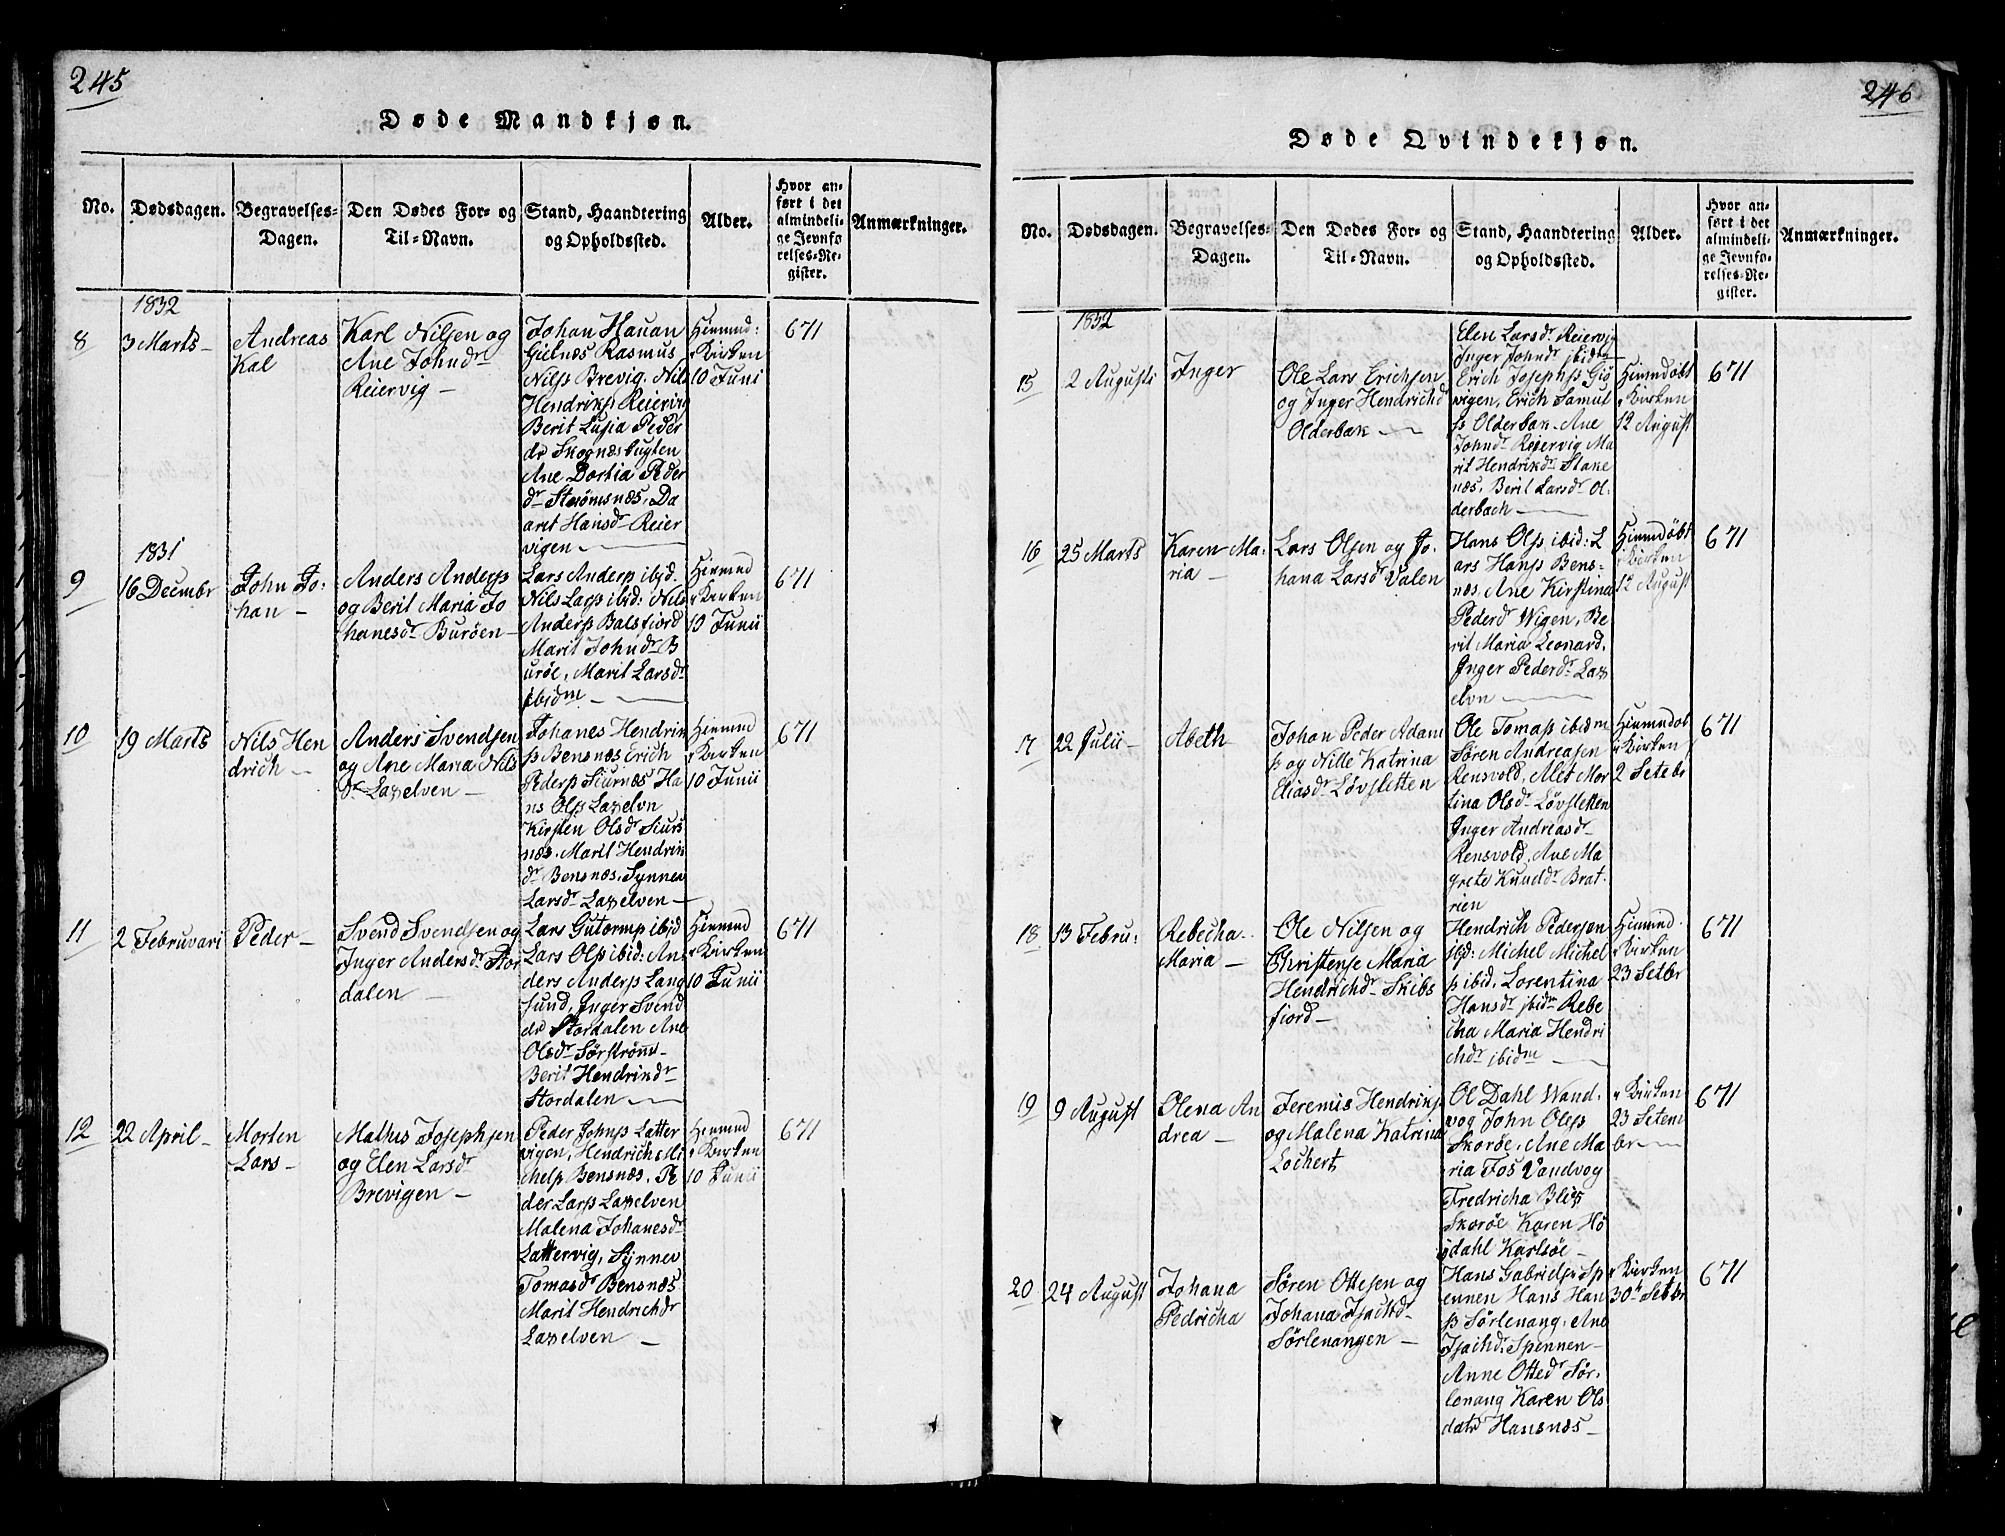 245
Døde Mandkjøn.
No.
Dødsdagen.
Begravelses-
Dagen.
Den Dødes For- og
Til-Navn.
Stand, Haandtering
og Opholdssted.
Alder.
Hvor an-
ført i det
almindeli-
ge Jevnfø
relses-Re-
gister.
Anmærkninger.
1832
8
3 Marts
Andreas
Kal
Karl Nilsen og
Ane Johndr
Reiervig
Johan Hauan
Gielnæs Rasmus
Nilss Brevig. Nils
Hendrikss Reiervig
Berit Lusia Peder
dr Skognæsbugten
Ane Dortia Peder
dr Strømsnæs, Da
aret Hansdr Reier
vigen
Hiemmd:
Kirken
10 Juni
671
1831
9
16 Decmbr
John Jo:
han
Anders Anderss
og Berit Maria Jo
hanesdr Burøen
Lars Anderss ibid.
Nils Larss ibid: Nils
Anderss Balsfiord
Marit Johndr B
urøe, Marit Larsdr
ibidm
Hiemmd
Kirken
10 Junii
671
10
19 Marts
Nils Hen
drich
Anders Svendsen
og Ane Maria Nils
dr Laxelven
Johanes Hendrik
ss Bensnæs Erich
Pederss Siursnæs Ha
ns Olss Laxelvn
Kirsten Olsdr Siurs
næs. Marit Hendrik
dr Bensnæs, Synnev
Larsdr Laxelven
Hiemmd
Kirken
10 Junii
671
11
2 Februvari
Peder
Svend Svendsen og
Inger Andersdr Stor
dalen
Lars Gutormss ibid
Lars Olss ibid: An
ders Anderss Lang
sund, Inger Svend
dr Stordalen Ane
Olsdr Sørstrømn
Berit Hendrikdr
Stordalen
Hiemmd
Kirken
10 Junii
671
12
22 April
Morten
Lars
Mathis Josephsen
og Elen Larsdr
Brevigen
Peder Johnss Latter
vigen, Hendrich Mi
chelss Bensnæs. Pe
der Larss Laxelven
Malena Johanesdr
Lattervig, Synnev
Tomasdr Bensnæs
Marit Hendrichdr
Laxelven
Hiemmd
Kirken
10 Junii
671
246
Døde Qvindekjøn.
No.
Dødsdagen.
Begravelses-
Dagen.
Den Dødes For- og
Til-Navn.
Stand, Haandtering
og Opholdssted.
Alder.
Hvor an-
ført i det
almindeli-
ge Jevnfø-
relses-Re-
gister.
Anmærkninger.
1832
15
2 Augusti
Inger
Ole Lars Erichsen
og Inger Hendrichdr
Olderbak
Elen Larsdr Reiervig
Inger Johndr ibidm
Erich Josephss Giø
vigen, Erich Samul
ss Olderbak. Ane
Johndr Reiervig Ma
rit Hendrikdr Stake
næs, Berit Larsdr Ol-
derbach
Hiemdøbt
Kirken
12 August
671
16
25 Marts
Karen Ma:
ria
Lars Olsen og Jo:
hana Larsdr Valen
Hans Olss ibid: L
ars Hanss Bens-
næs. Ane Kirstina
Pederd Wigen, Be
rit Maria Leonard.
Inger Pederdr Lax
elvn
Hiemdøbt
Kirken
12 August
671
17
22 Julii
Abeth
Johan Peder Adam
ss og Nille Katrina
Eliasdr Løvsletten
Ole Tomass ibidm
Søren Andreasen
Rensvold, Alet Mor
tina Olsdr Løvsletten
Inger Andreasdr
Rensvold, Ane Ma
grete Knuddr Brat-
rien
Hiemmdøb
Kirken
2 Setebr
671
18
13 Febru:
Rebecha
Maria
Ole Nilsen og
Christense Maria
Hendrichdr Skibs
fiord
Hendrich Pedersen
ibid: Michel Michel
ss ibid. Lorentina
Hansdr ibidm Rebe
cha Maria Hendri
chdr ibidm
Hiemmd
Kirken
23 Setbr
671
19
9 August
Olena An
drea
Jeremis Hendrikss
og Malena Katrina
Lochert
Ol Dahl Wand-
vog John Olss
Skorøe, Ane Ma
ria Fos Vandvog
Fredricha Blix
Skorøe Karen Hö
gdahl Karlsøe
Kirken
23 Setem
br
671
20
24 August
Johana
Pedricha
Søren Ottesen og
Johana Isachdr
Sørlenangen
Hans Gabrielsen Sp
ennen Hans Han
ss Sørlenang, Ane
Isachd: Spennen
Anne Ottedr Sør-
lenang Karen Ols
datr Hansnæs
Kirken
30 Setbr
671